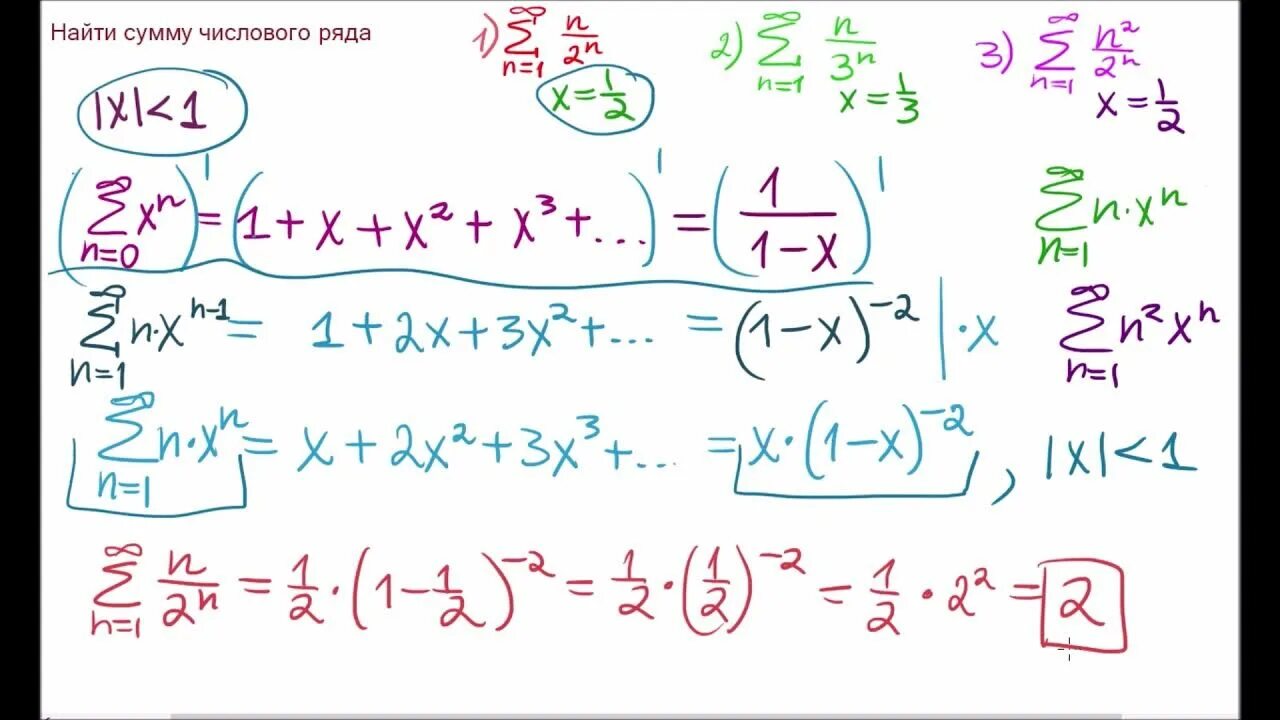 Найти сумму числового ряда
1) ∑_{n=1}^{∞} n/2ⁿ 2) ∑_{n=1}^{∞} n/3ⁿ 3) ∑_{n=1}^{∞} n²/2ⁿ
|x|<1 x=1/2 x=1/3 x=1/2
(∑_{n=0}^{∞} xⁿ)' = (1+x+x²+x³+...)' = (1/(1-x))' ∑_{n=1}^{∞} n·xⁿ
∑_{n=1}^{∞} n·xⁿ⁻¹ = 1+2x+3x²+... = (1-x)⁻² | ·x ∑_{n=1}^{∞} n²xⁿ
∑_{n=1}^{∞} n·xⁿ = x+2x²+3x³+... = x·(1-x)⁻², |x|<1
∑_{n=1}^{∞} n/2ⁿ = 1/2·(1-1/2)⁻² = 1/2·(1/2)⁻² = 1/2·2² = 2